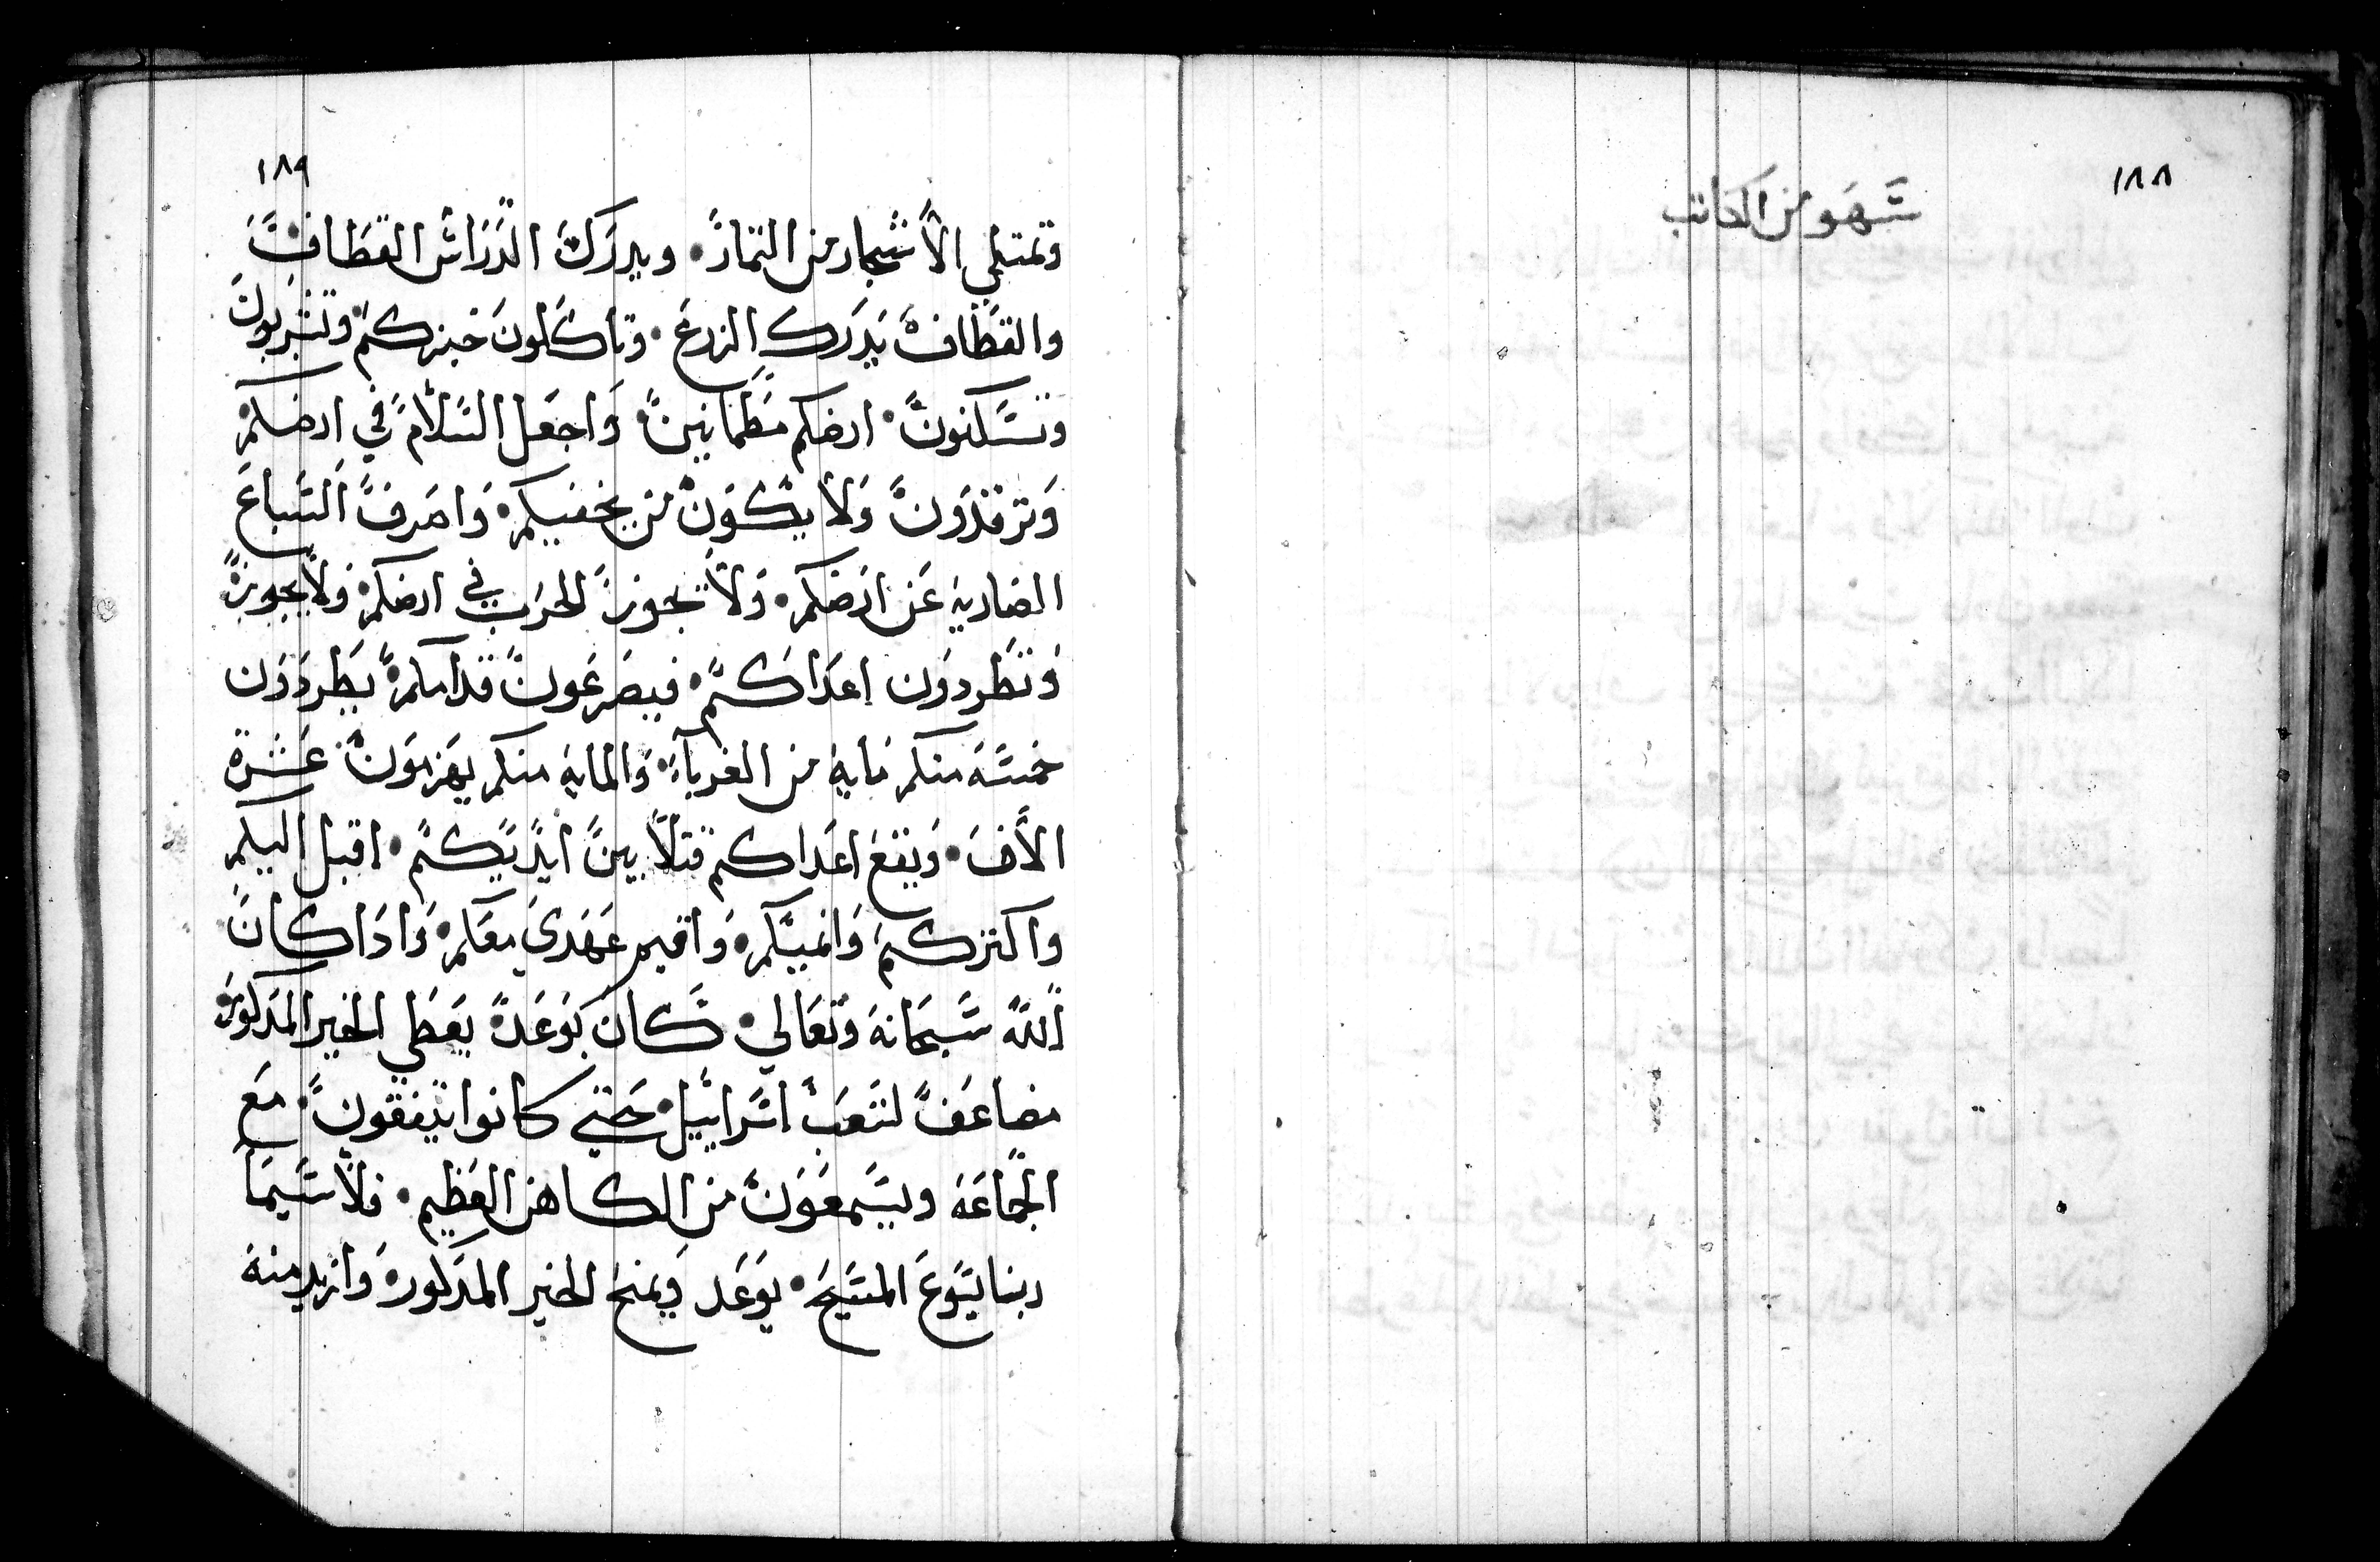 ١٨٨
سهو من الكاتب
١٨٩
وتمتلي الأشجار من الثمار • ويدرك الدراس القطاف
والقطاف يدرك الزرع • وتاكلون خبزكم • وتشربون
وتسكنون • ارضكم مطمانين • واجعل السلام في ارضكم •
وترقدون ولا يكون من يخفيكم • واصرف السباع
الضاريه عن ارضكم • ولا تجوز الحرب في ارضكم • ولا يجوز
وتطردون اعداكم • فيصرعون قدامكم • يطردون
خمسه منكم مايه من الغربآء • والمايه منكم يهزمون عشرة
الاف • ويقع اعداكم قتلا بين ايديكم • اقبل اليكم
واكثركم وانميكم • واقيم عهدي معكم • واذا كان
الله سبحانه وتعالي • كان يوعد يعطي الخير المذكور •
مضاعف لشعب اسراييل • حتي كانوا يتفقون • مع
الجماعه ويسمعون من الكاهن العظيم • فلا سيما
ربنا يسوع المسيح • يوعد ويمنح الخير المذكور • وازيد منه